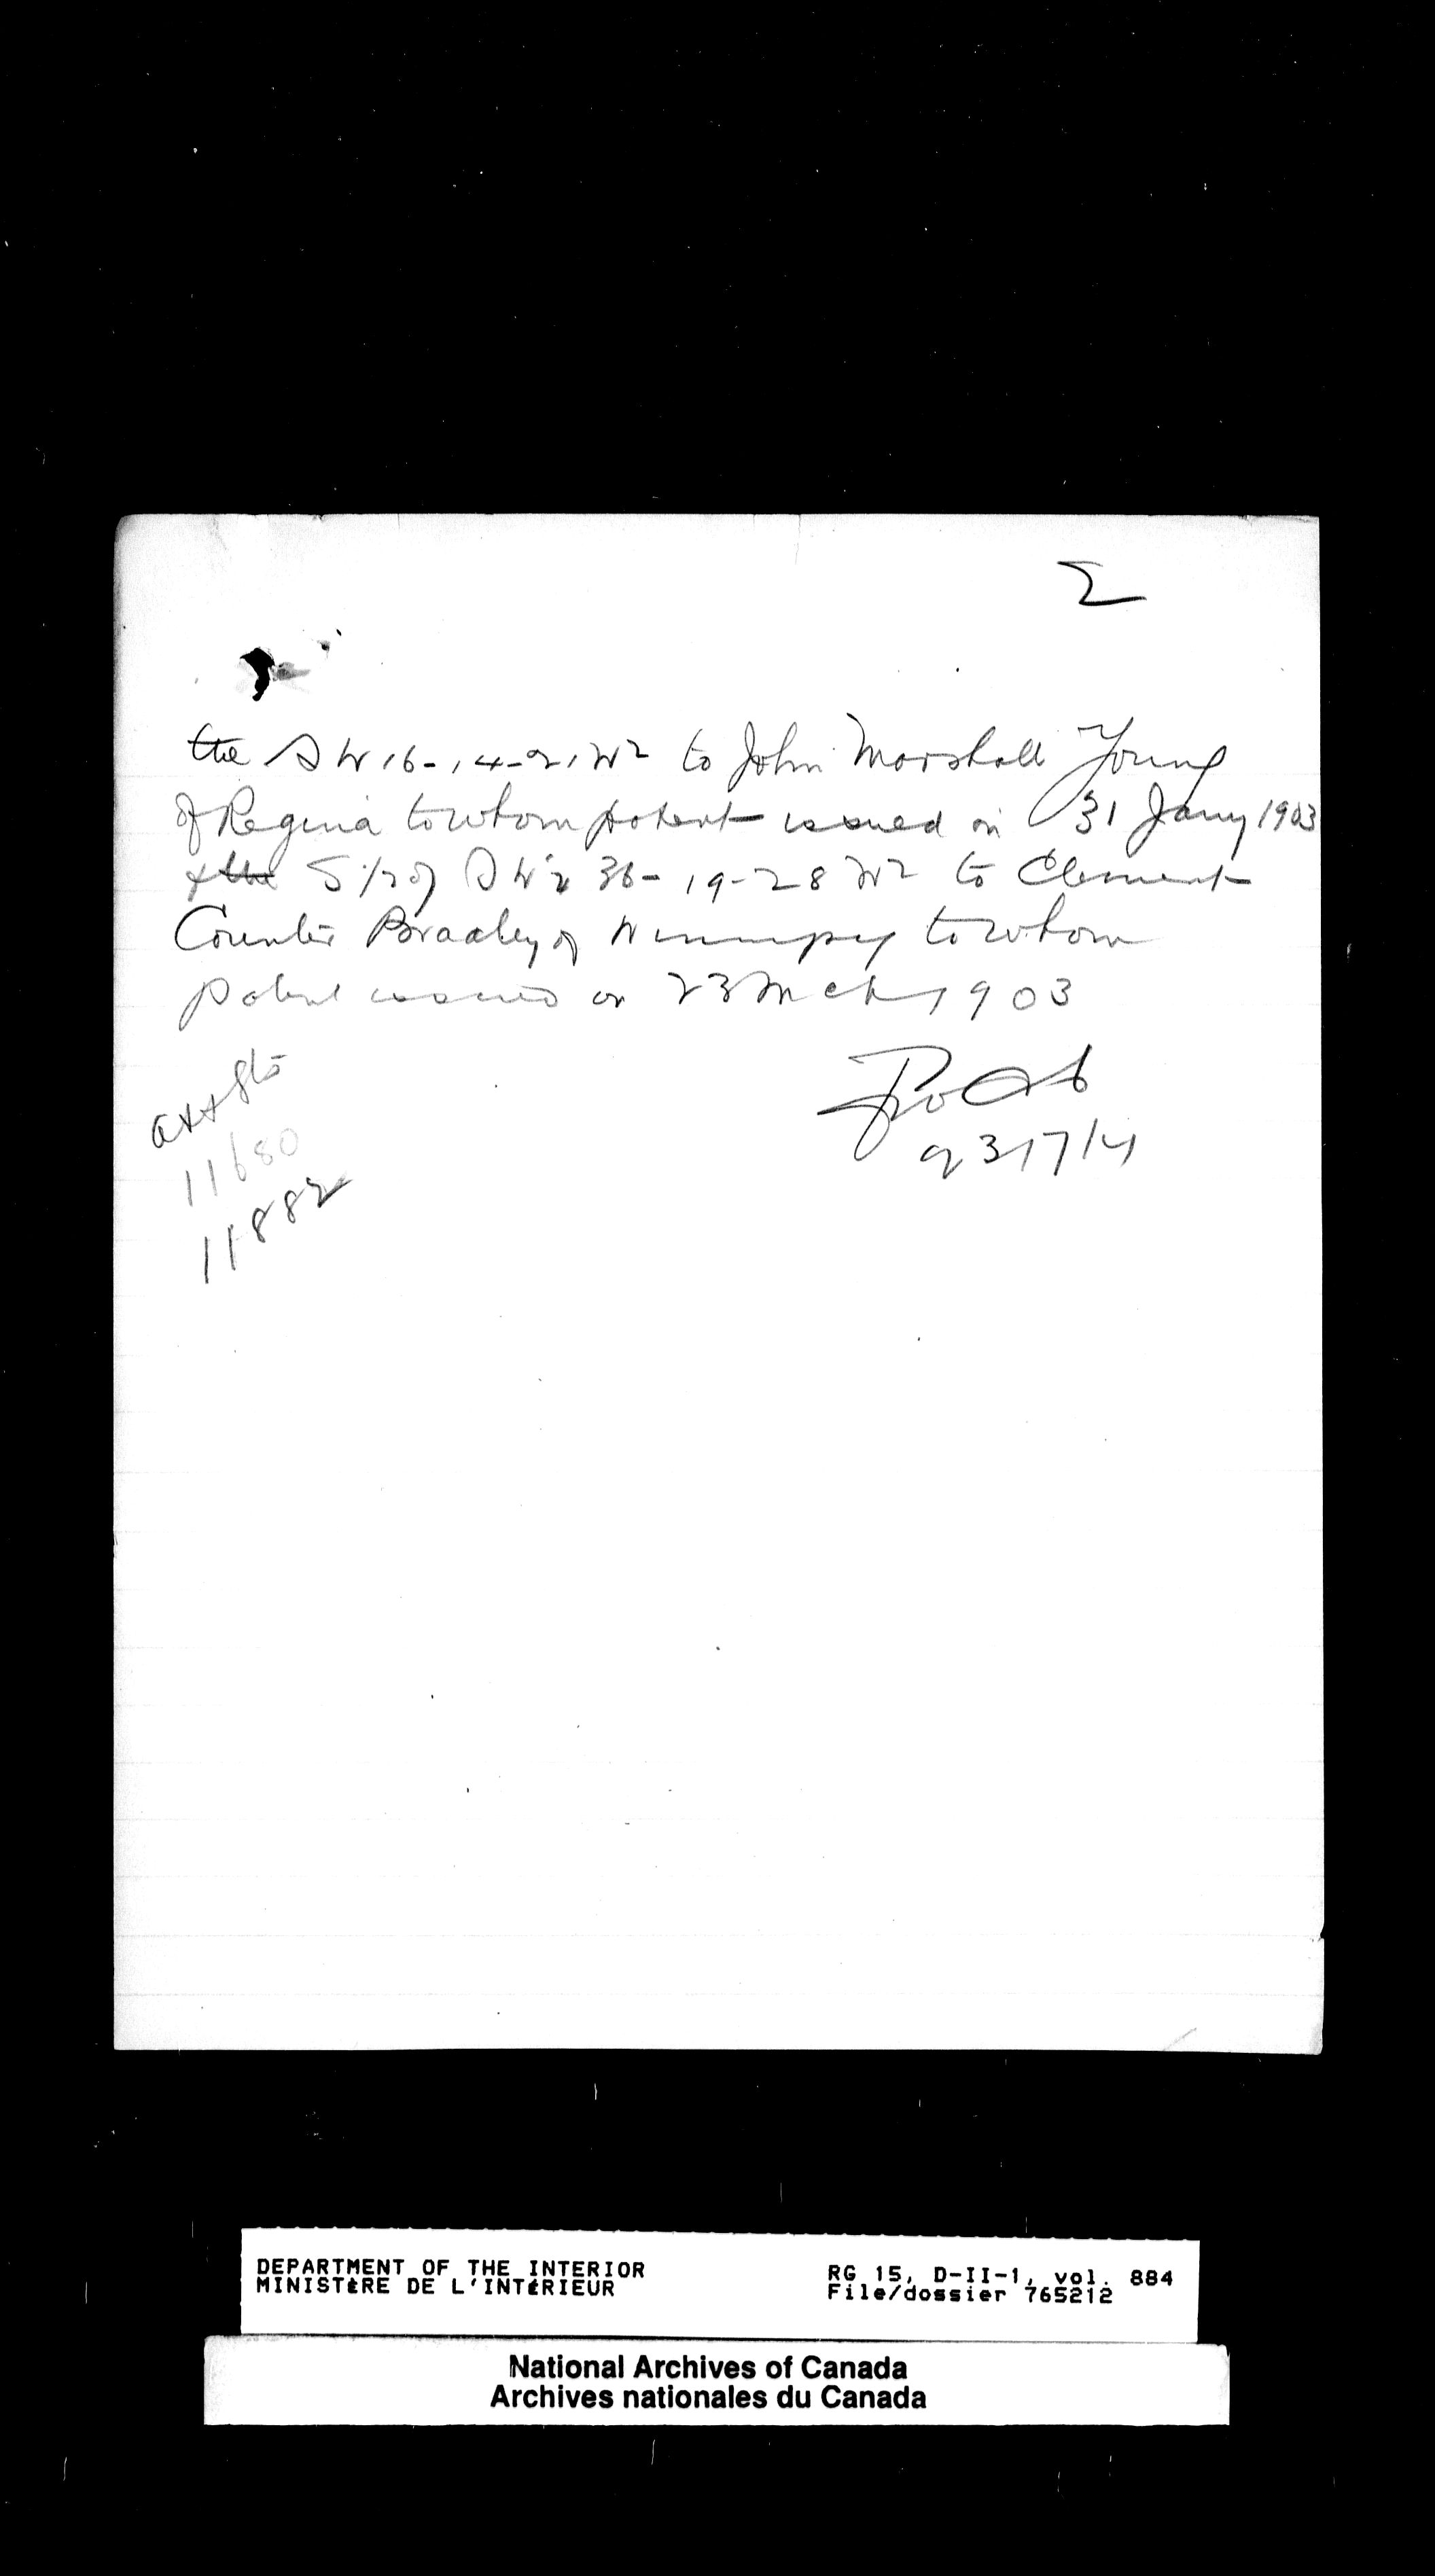 2
the SW 16-14-21 W2 to John Marshall Young
of Regina to whom patent issued on 31 Jany 1903
& the S 1/2 of SW 1/4 36-19-28 W2 to Clement
Counter Bradley of Winnipeg to whom
patent issued on 23 Mch 1903
11680
11882
DEPARTMENT OF THE INTERIOR
MINISTÈRE DE L'INTÉRIEUR
RG 15, D-II-1, vol. 884
File/dossier 765212
National Archives of Canada
Archives nationales du Canada